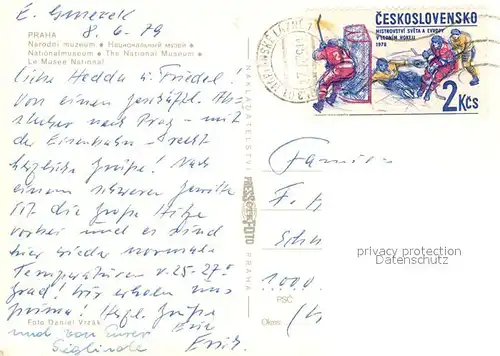 8. 6. 79
PRAHA
Národní muzeum • Национальный музей •
Nationalmuseum • The National Museum •
Le Musée National
Liebe Hedda u. Friedel!
Von einem
nach Prag – mit
der Eisenbahn – recht
herzliche Grüße! Nach
einem schweren Gewitter
ist die große Hitze
vorbei und es sind
hier wieder normale
Temperaturen v. 25-27°
Grad! Wir erholen uns
prima! Herzl. Grüße
Foto Daniel Vrzák
Euer
und von Eurer Erich
Sieglinde
NAKLADATELSTVÍ
PRESSFOTO
PRAHA
ČESKOSLOVENSKO
MISTROVSTVÍ SVĚTA A EVROPY
V LEDNÍM HOKEJI
1978
2 Kčs
F.
Sch
1000
PSČ
Okres:
privacy protection
Datenschutz